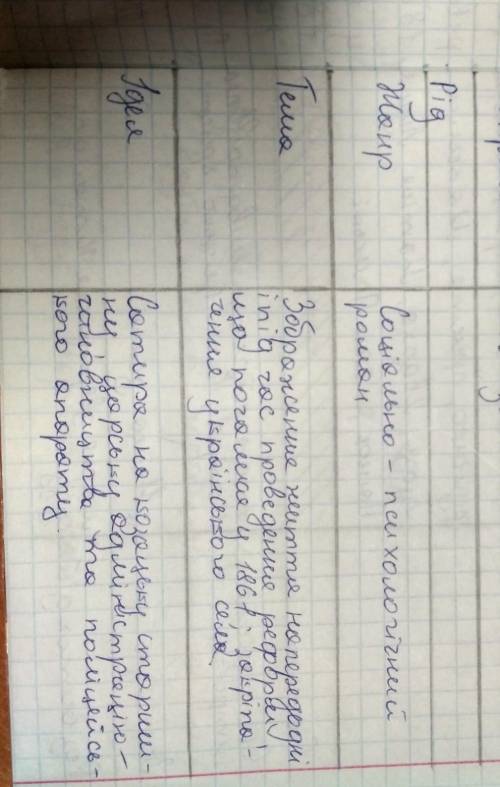 Рід
Жанр
Соціально - психологічний
роман
Тема
Зображення життя напередодні
і під час проведення реформи,
що почалися у 1861, закріпа-
чення українського села
Ідея
Сатира на козацьку старши-
ну, царську адміністрацію -
чиновництва та поліцейсь-
кого апарату.